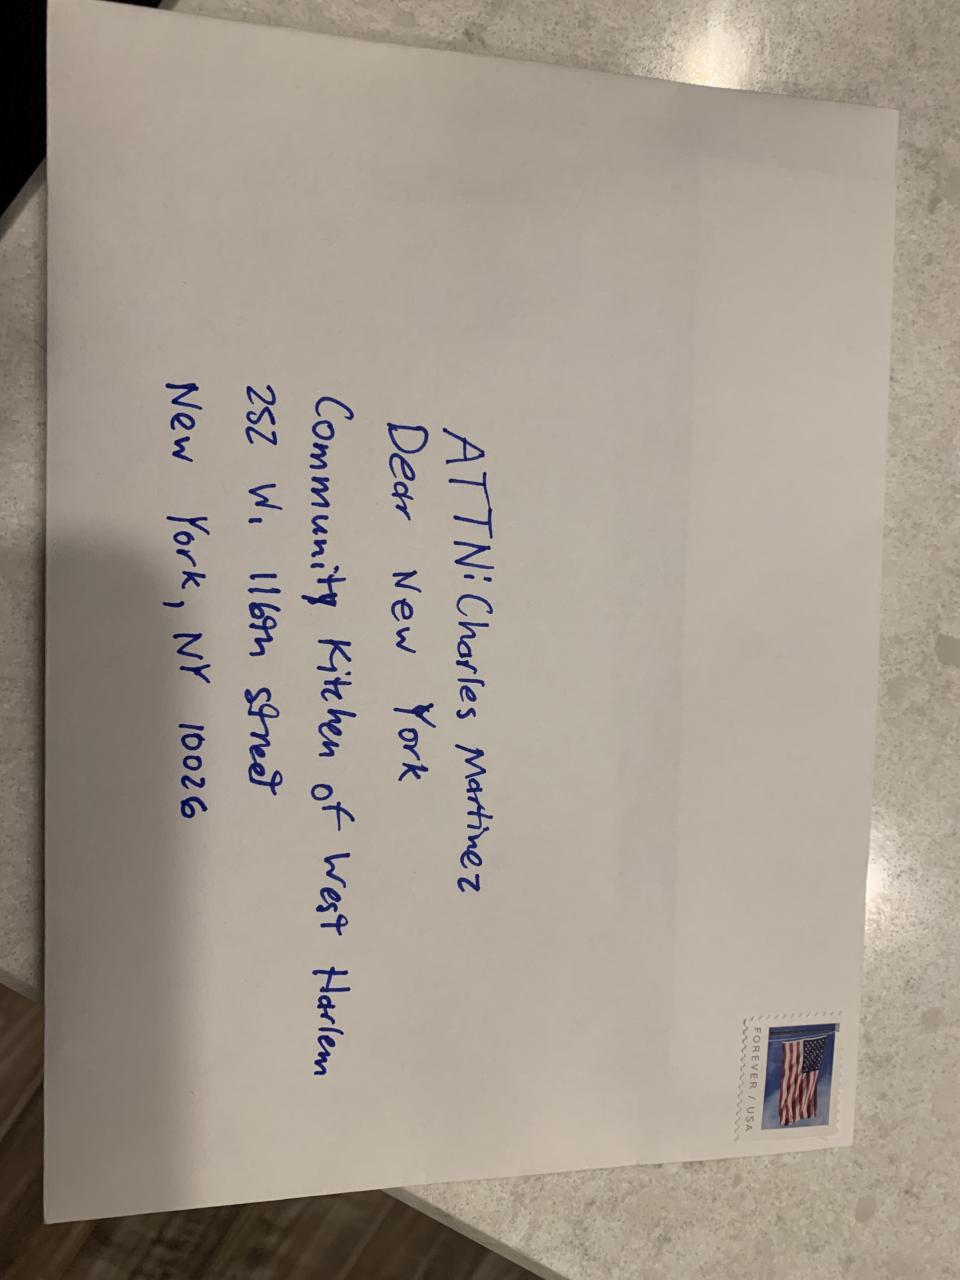 ATTN: Charles Martinez
Dear New York
Community Kitchen of West Harlem
252 W. 116th street
New York, NY 10026
FOREVER / USA